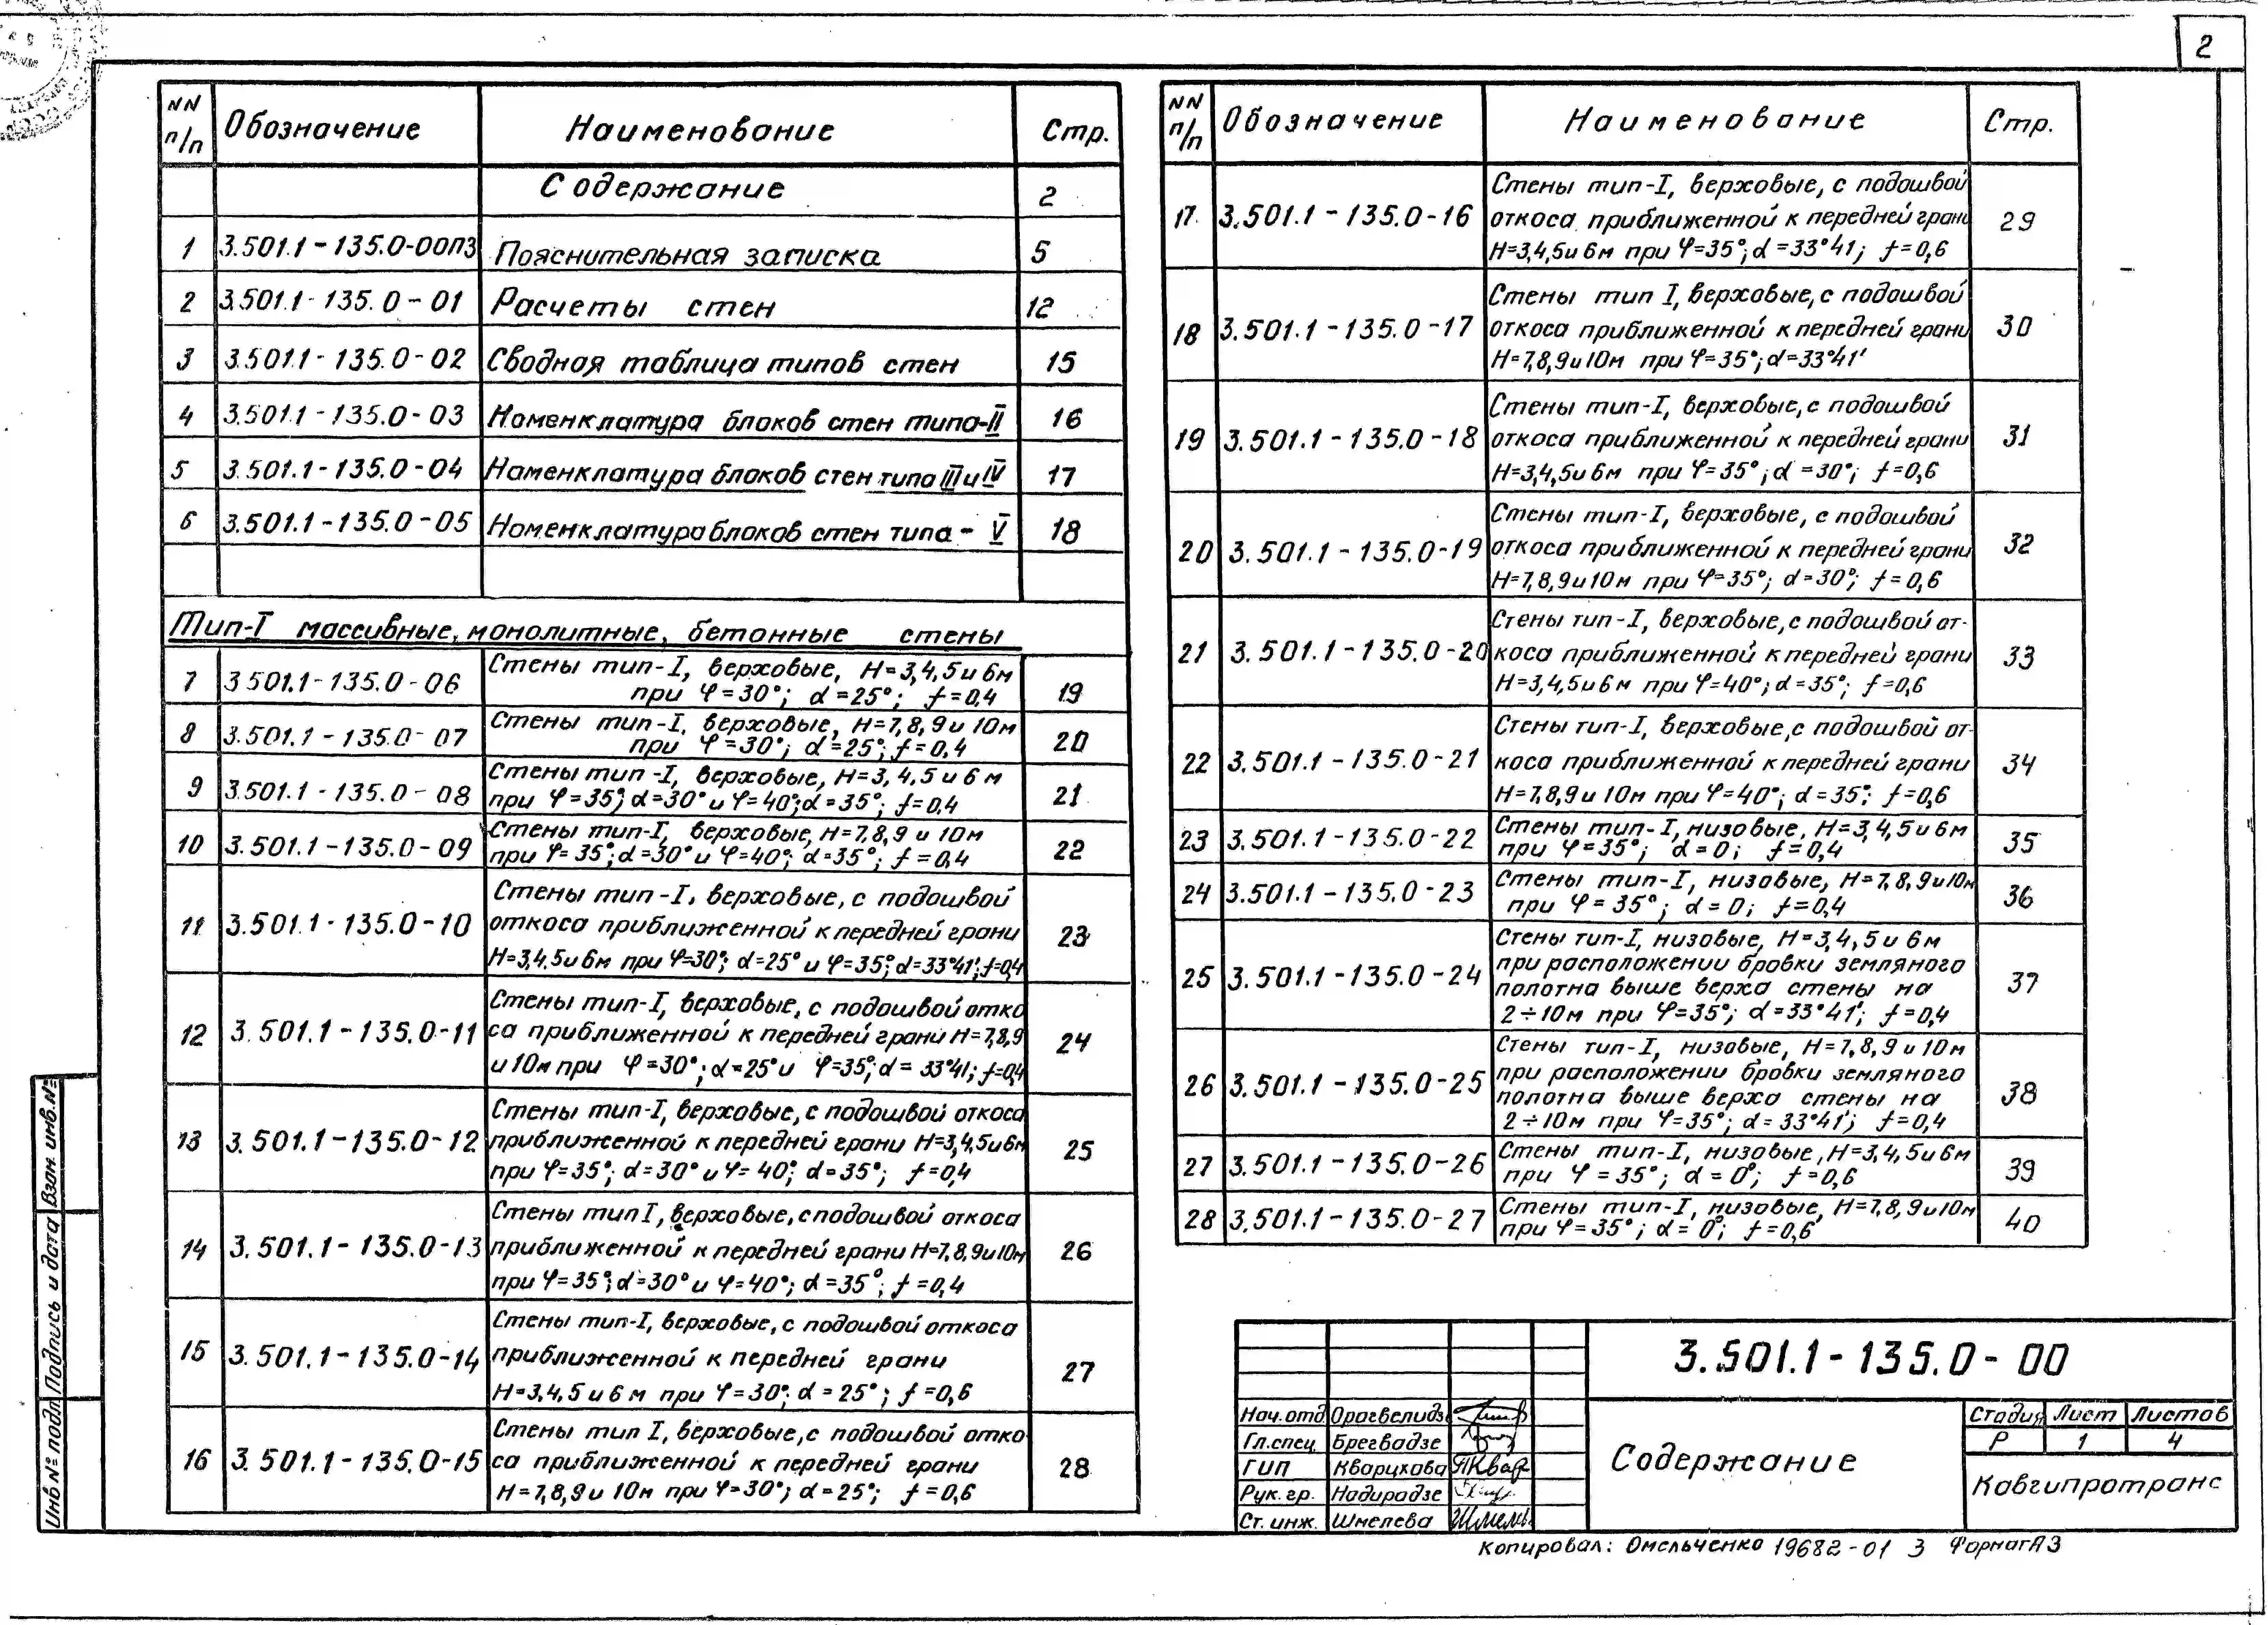 2
NN п/п Обозначение Наименование Стр.
Содержание 2
1 3.501.1-135.0-00ПЗ Пояснительная записка 5
2 3.501.1-135.0-01 Расчеты стен 12
3 3.501.1-135.0-02 Сводная таблица типов стен 15
4 3.501.1-135.0-03 Номенклатура блоков стен типа-II 16
5 3.501.1-135.0-04 Номенклатура блоков стен типа III и IV 17
6 3.501.1-135.0-05 Номенклатура блоков стен типа-V 18
Тип-I массивные, монолитные, бетонные стены
7 3.501.1-135.0-06 Стены тип-I, верховые, H=3,4,5 и 6м
при φ=30°; α=25°; f=0,4 19
8 3.501.1-135.0-07 Стены тип-I, верховые, H=7,8,9 и 10м
при φ=30°; α=25°; f=0,4 20
9 3.501.1-135.0-08 Стены тип-I, верховые, H=3,4,5 и 6 м
при φ=35°; α=30° и φ=40°; α=35°; f=0,4 21
10 3.501.1-135.0-09 Стены тип-I, верховые, H=7,8,9 и 10м
при φ=35°; α=30° и φ=40°; α=35°; f=0,4 22
11 3.501.1-135.0-10 Стены тип-I, верховые, с подошвой
откоса приближенной к передней грани
H=3,4,5 и 6м при φ=30°; α=25° и φ=35°; α=33°41'; f=0,4 23
12 3.501.1-135.0-11 Стены тип-I, верховые, с подошвой отко
са приближенной к передней грани H=7,8,9
и 10м при φ=30°; α=25° и φ=35°; α=33°41'; f=0,4 24
13 3.501.1-135.0-12 Стены тип-I, верховые, с подошвой откоса
приближенной к передней грани H=3,4,5 и 6м
при φ=35°; α=30° и φ=40°; α=35°; f=0,4 25
14 3.501.1-135.0-13 Стены тип I, верховые, с подошвой откоса
приближенной к передней грани H=7,8,9 и 10м
при φ=35°; α=30° и φ=40°; α=35°; f=0,4 26
15 3.501.1-135.0-14 Стены тип-I, верховые, с подошвой откоса
приближенной к передней грани
H=3,4,5 и 6 м при φ=30°; α=25°; f=0,6 27
16 3.501.1-135.0-15 Стены тип I, верховые, с подошвой отко
са приближенной к передней грани
H=7,8,9 и 10м при φ=30°; α=25°; f=0,6 28
NN п/п Обозначение Наименование Стр.
17 3.501.1-135.0-16 Стены тип-I, верховые, с подошвой
откоса приближенной к передней грани
H=3,4,5 и 6м при φ=35°; α=33°41; f=0,6 29
18 3.501.1-135.0-17 Стены тип I, верховые, с подошвой
откоса приближенной к передней грани
H=7,8,9 и 10м при φ=35°; α=33°41' 30
19 3.501.1-135.0-18 Стены тип-I, верховые, с подошвой
откоса приближенной к передней грани
H=3,4,5 и 6м при φ=35°; α=30°; f=0,6 31
20 3.501.1-135.0-19 Стены тип-I, верховые, с подошвой
откоса приближенной к передней грани
H=7,8,9 и 10м при φ=35°; α=30°; f=0,6 32
21 3.501.1-135.0-20 Стены тип-I, верховые, с подошвой от-
коса приближенной к передней грани
H=3,4,5 и 6м при φ=40°; α=35°; f=0,6 33
22 3.501.1-135.0-21 Стены тип-I, верховые, с подошвой от-
коса приближенной к передней грани
H=7,8,9 и 10м при φ=40°; α=35°; f=0,6 34
23 3.501.1-135.0-22 Стены тип-I, низовые, H=3,4,5 и 6м
при φ=35°; α=0; f=0,4 35
24 3.501.1-135.0-23 Стены тип-I, низовые, H=7,8,9 и 10м
при φ=35°; α=0; f=0,4 36
25 3.501.1-135.0-24 Стены тип-I, низовые, H=3,4,5 и 6м
при расположении бровки земляного
полотна выше верха стены на
2÷10м при φ=35°; α=33°41'; f=0,4 37
26 3.501.1-135.0-25 Стены тип-I, низовые, H=7,8,9 и 10м
при расположении бровки земляного
полотна выше верха стены на
2÷10м при φ=35°; α=33°41'; f=0,4 38
27 3.501.1-135.0-26 Стены тип-I, низовые, H=3,4,5 и 6м
при φ=35°; α=0°; f=0,6 39
28 3.501.1-135.0-27 Стены тип-I, низовые, H=7,8,9 и 10м
при φ=35°; α=0°; f=0,6 40
Взам. инв.№
Подпись и дата
Инв № подл
3.501.1-135.0-00
Нач.отд
Гл.спец. Брегвадзе
ГИП Кварцхава
Рук.гр. Надирадзе
Ст. инж. Шмелева
Содержание
Стадия Лист Листов
Р 1 4
Кавгипротранс
Копировал: Омельченко 19682-01 3 Формат А3